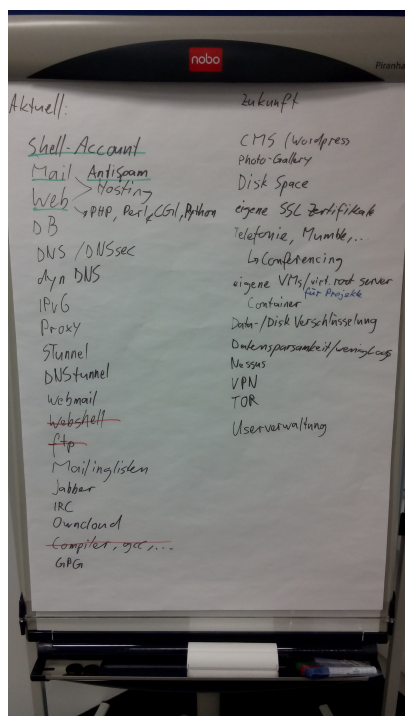 nobo
Piranha
Aktuell:
Shell-Account
Mail Antispam
Web > Hosting
↳ PHP, Perl, CGI, Python
DB
DNS / DNSsec
dyn DNS
IPv6
Proxy
STunnel
DNStunnel
Webmail
Webshell
ftp
Mailinglisten
Jabber
IRC
Owncloud
Compiler, gcc, ...
GPG
Zukunft
CMS / Wordpress
Photo-Gallery
Disk Space
eigene SSL Zertifikate
Telefonie, Mumble, ..
↳ Conferencing
eigene VMs / virt. root server
für Projekte
Container
Data-/Disk Verschlüsselung
Datensparsamkeit / wenig Logs
Nessus
VPN
TOR
Userverwaltung